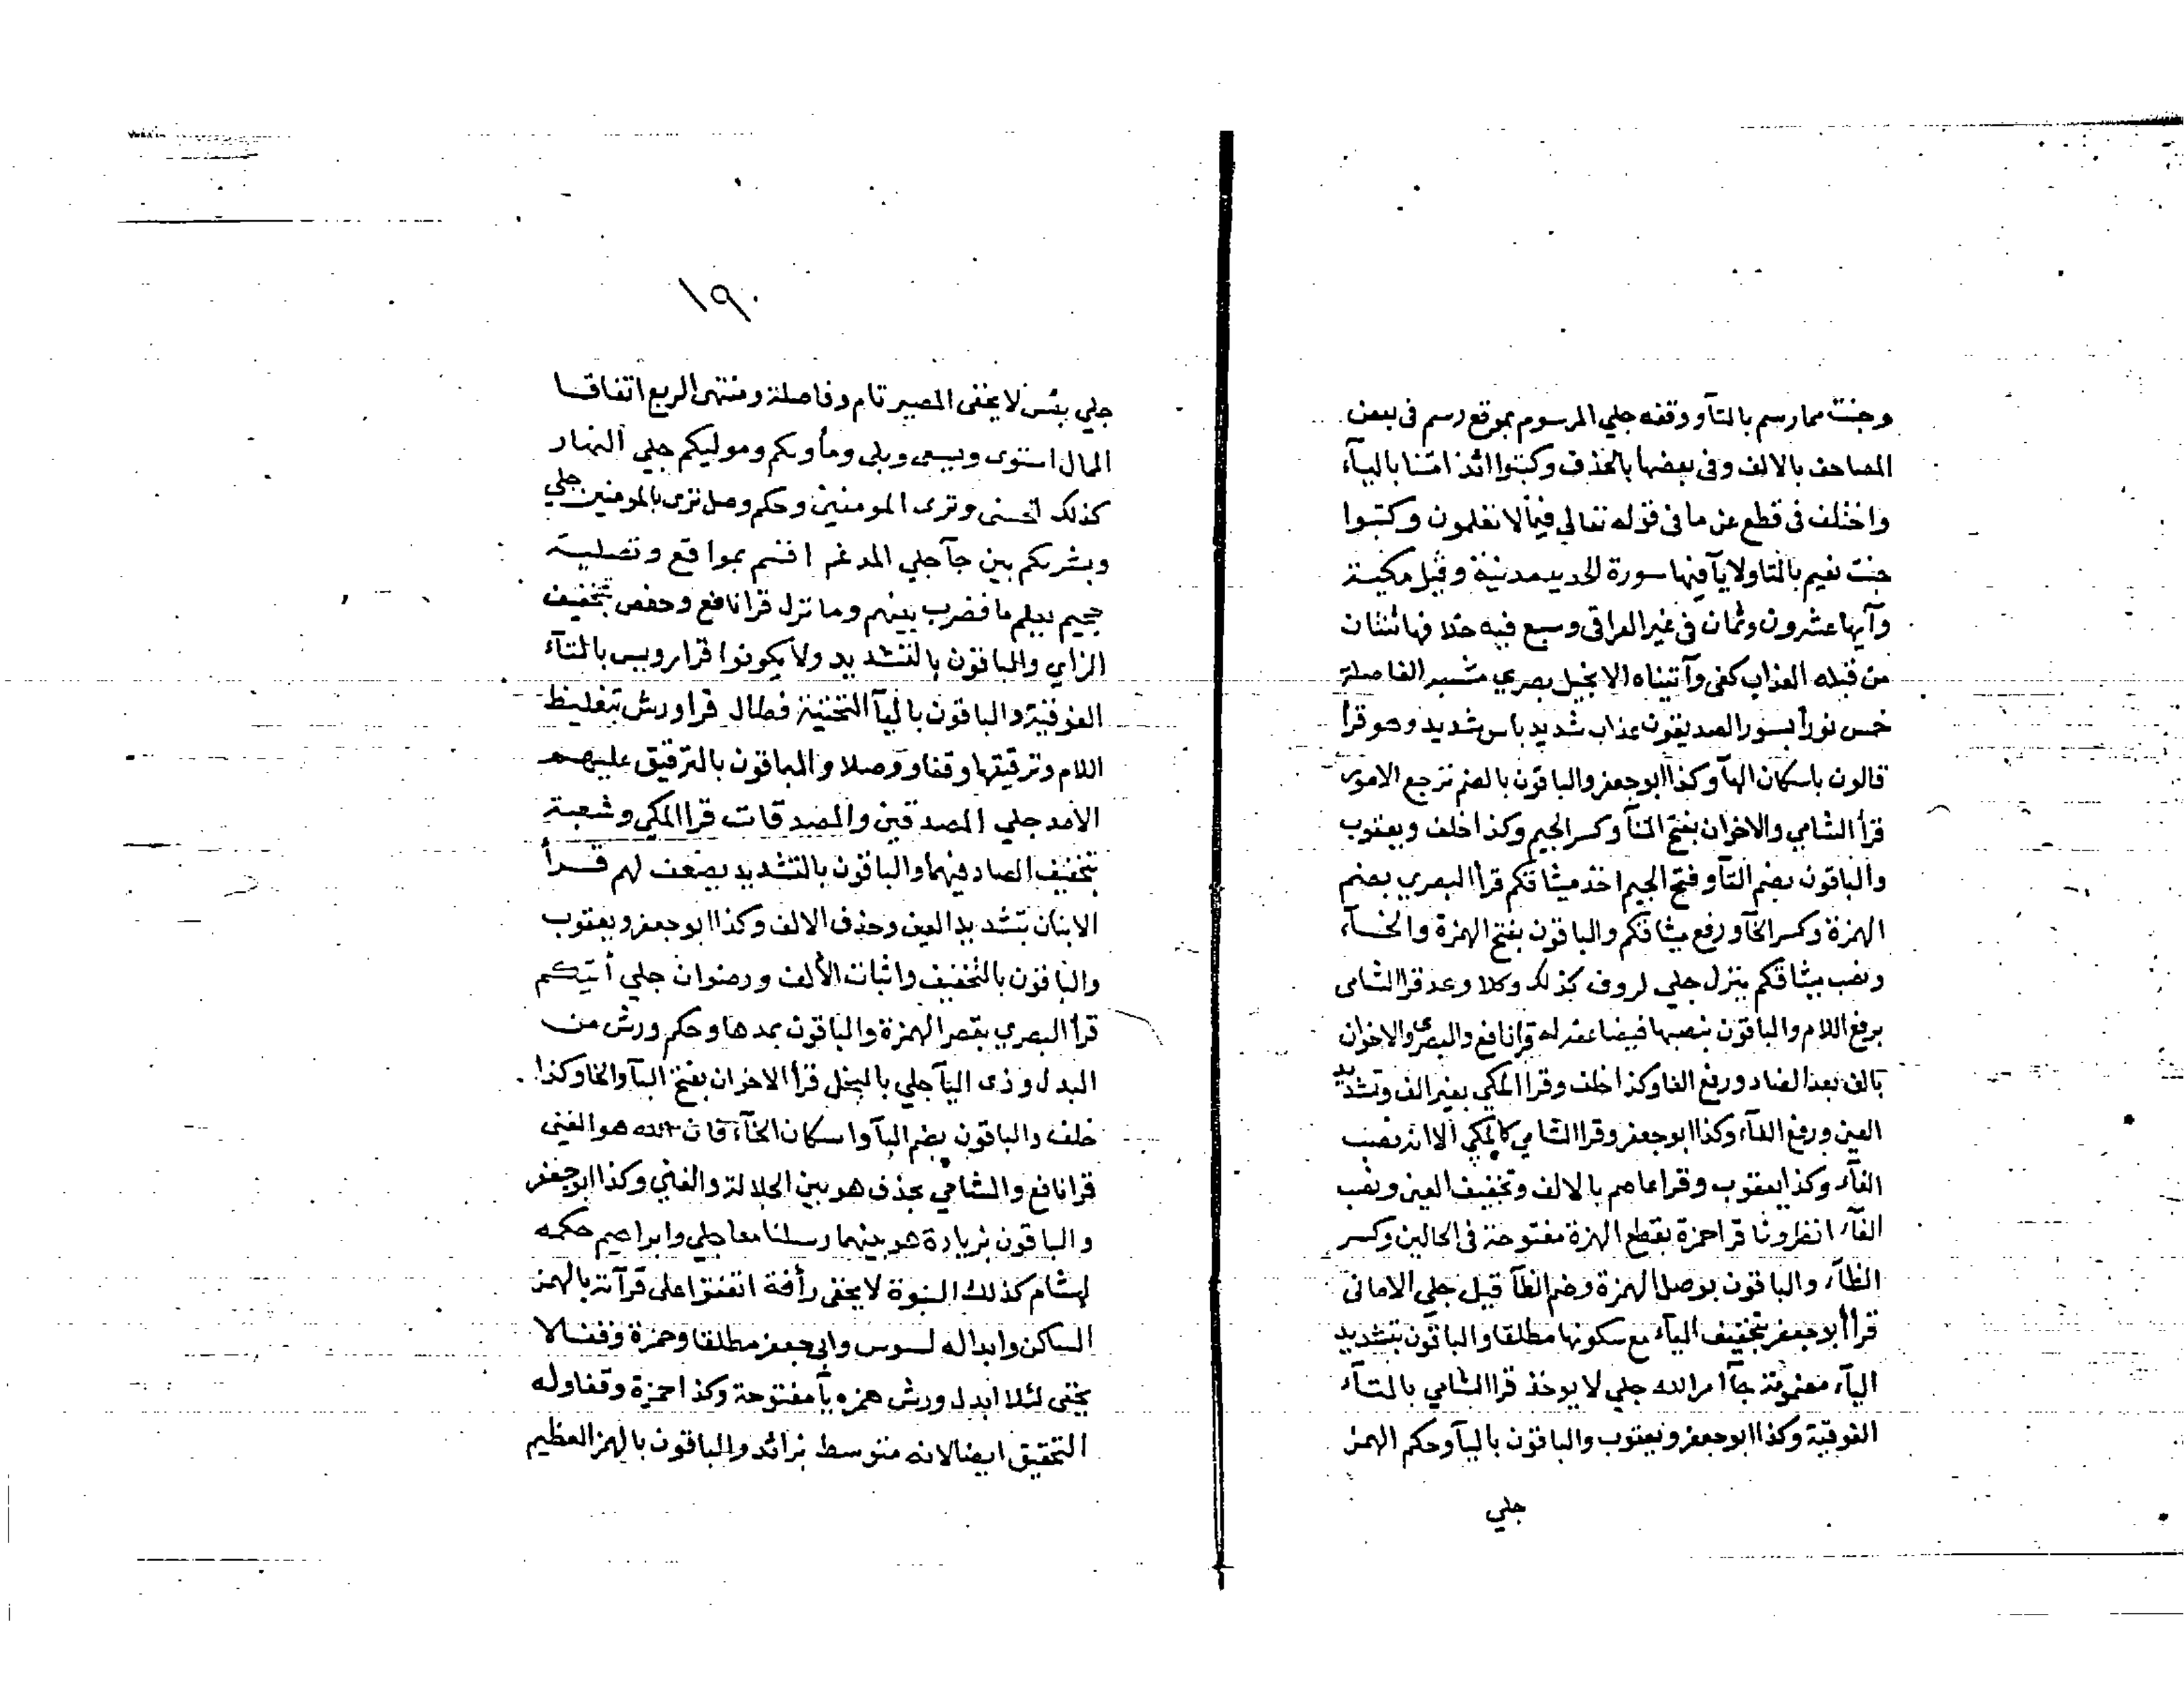 وجنت مما رسم بالتآ ووقفه جلي المرسوم بموقع رسم فى بعض
المصاحف بالالف وفى بعضها بالحذف وكتبوا ائذا متنا باليآء
واختلف فى قطع عن ما فى قوله تعالي فيما لا تعلمون وكتبوا
جنت نعيم بالتا ولا يآ فيها سورة الحديد مدنية وقيل مكية
وآيها عشرون وثمان فى غير العراقى وسبع فيه خلافها ثنتان
من قبله العذاب كفى وآتيناه الانجيل بصري مشبه الفاصلة
خمس نورا بسور الصديقون عذاب شديد باس شديد وهو قرأ
قالون باسكان الهآ وكذا ابو جعفر والباقون بالضم ترجع الامور
قرأ الشامي والاخوان بفتح التآ وكسر الجيم وكذا خلف ويعقوب
والباقون بضم التآ وفتح الجيم اخذ ميثاقكم قرأ البصري بضم
الهمزة وكسر الخآ ورفع ميثاقكم والباقون بفتح الهمزة والخآء
ونصب ميثاقكم ينزل جلي لروف كذلك وكلا وعد قرا الشامى
برفع اللام والباقون بنصبها فيضاعفه له قرا نافع والبصرى والاخوان
بالف بعد الضاد ورفع الفا وكذا خلف وقرا المكي بغير الف وتشديد
العين ورفع الفآء وكذا ابو جعفر وقرا الشامي كالمكي الا انه بنصب
الفآء وكذا يعقوب وقرا عاصم بالالف وتخفيف العين ونصب
الفآء انظرونا قرا حمزة بقطع الهمزة مفتوحة فى الحالين وكسر
الظآء والباقون بوصل الهمزة وضم الظآ قيل جلي الامانى
قرأ ابو جعفر بتخفيف اليآء مع سكونها مطلقا والباقون بتشديد
اليآء مضمومة جآ امر الله جلي لا يوخذ قرا الشامي بالتآء
الفوقية وكذا ابو جعفر ويعقوب والباقون باليآ وحكم الهمز
جلي
١٩٠
جلي بئس لا يخفى المصير تام وفاصلة ومنتهى الربع اتفاقا
الممال استوى ويسعى وبلى ومأويكم وموليكم جلي النهار
كذلك الحسنى وترى المومنين وحكم وصل ترى بالمومنين جلي
وبشريكم بين جآ جلي المدغم اقسم بمواقع وتصلية
جحيم يعلم ما فضرب بينهم وما نزل قرا نافع وحفص بتخفيف
الزاي والباقون بالتشديد ولا يكونوا قرا رويس بالتآء
الفوقية والباقون باليآ التحتية فطال قرا ورش بتغليظ
اللام وترقيقها وقفا ووصلا والباقون بالترقيق عليهم
الامد جلي المصدقين والمصدقات قرا المكي وشعبة
بتخفيف الصاد فيهما والباقون بالتشديد يضعف لهم قرأ
الابنان بتشديد العين وحذف الالف وكذا ابو جعفر ويعقوب
والباقون بالتخفيف واثبات الألف ورضوان جلي أتيكم
قرأ البصري بقصر الهمزة والباقون بمدها وحكم ورش من
البدل وذى اليآ جلي بالبخل قرأ الاخوان بفتح البآ والخا وكذا
خلف والباقون بضم البآ واسكان الخآء فان الله هو الغنى
قرا نافع والشامي بحذف هو بين الجلالة والغني وكذا ابو جعفر
والباقون بزيادة هو بينهما رسلنا معا جلي وابراهيم حكمه
لهشام كذلك النبوة لا يخفى رأفة اتفقوا على قرآته بالهمز
الساكن وابداله لسوس وابى جعفر مطلقا وحمزة وقفا لا
يخفى لئلا ابدل ورش همزه يآ مفتوحة وكذا حمزة وقفا وله
التحقيق ايضا لانه متوسط بزائد والباقون بالهمز العظيم